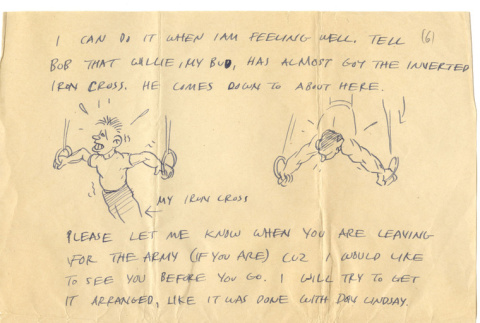 I CAN DO IT WHEN I AM FEELING WELL. TELL (6)
BOB THAT WILLIE, MY BUD, HAS ALMOST GOT THE INVERTED
IRON CROSS. HE COMES DOWN TO ABOUT HERE.
MY IRON CROSS
PLEASE LET ME KNOW WHEN YOU ARE LEAVING
FOR THE ARMY (IF YOU ARE) CUZ I WOULD LIKE
TO SEE YOU BEFORE YOU GO. I WILL TRY TO GET
IT ARRANGED, LIKE IT WAS DONE WITH DON LINDSAY.